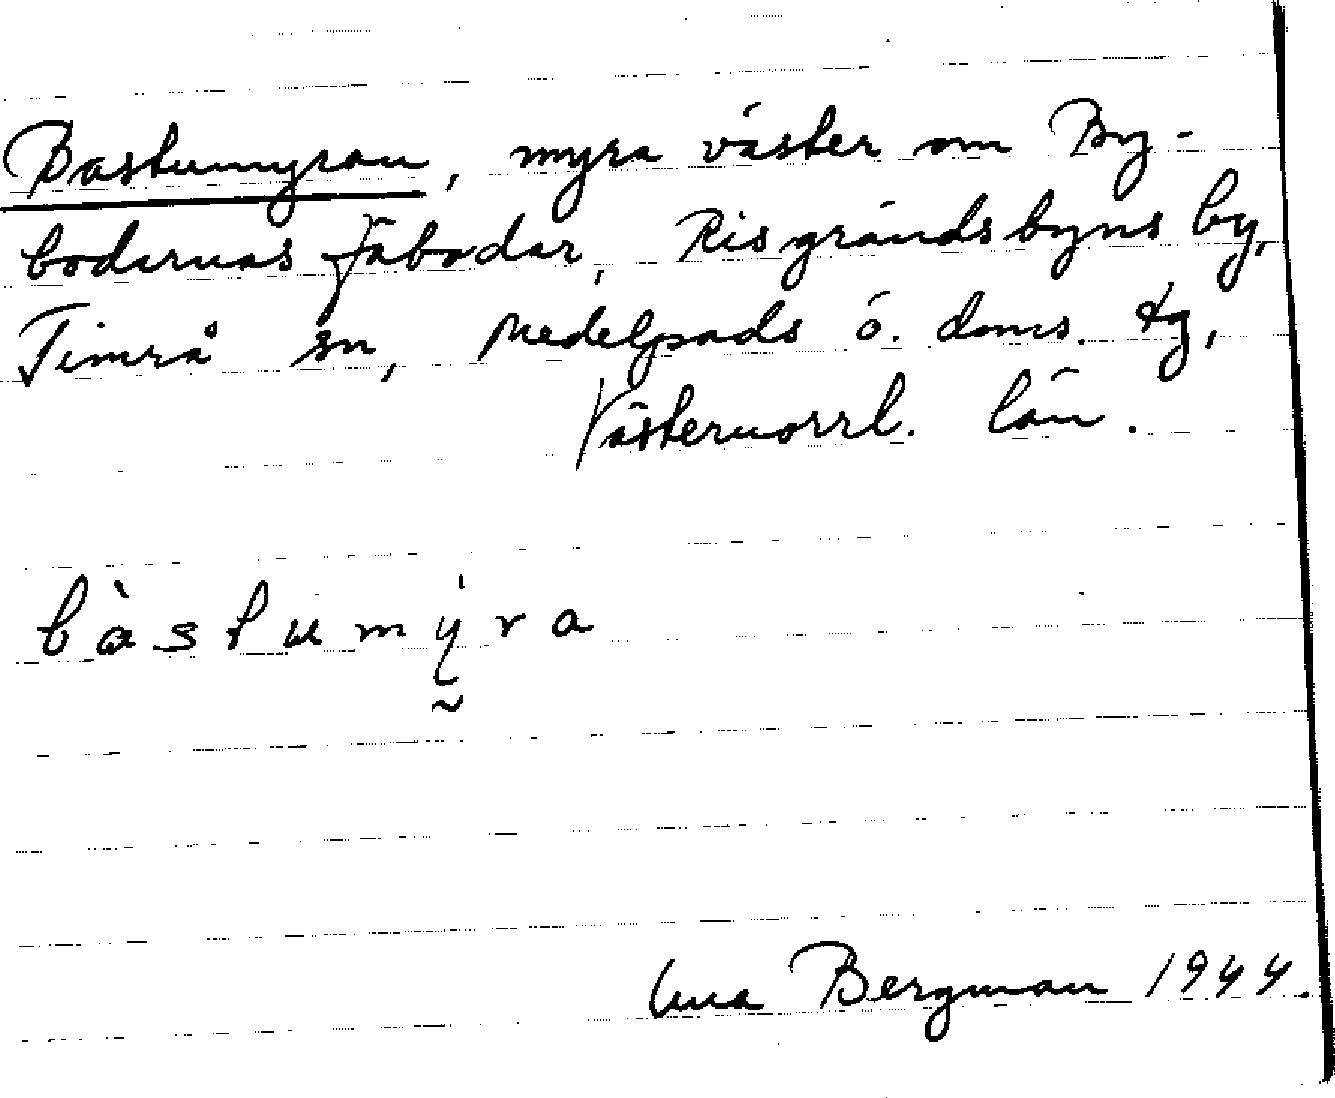 Bastumyran, myra väster om By-
bodarnas fäbodar, Risgrändsbyns by,
Timrå sn, Medelpads ö. doms. tg,
Västernorrl. län.
bàstumý̰ra
Bergman 1944.